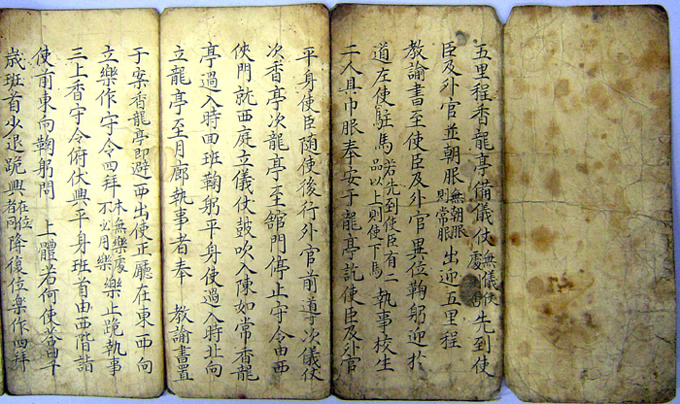 五里程香龍亭備儀仗無儀仗處否先到使
臣及外官並朝服無朝服則常服出迎五里程
教諭書至使臣及外官異位鞠躬迎於
道左使駐馬若先到使臣有二品以上則使下馬執事校生
二人具巾服奉安于龍亭訖使臣及外官
平身使臣随使後行外官前導次儀仗
次香亭次龍亭至舘門停止守令由西
俠門就西庭立儀仗鼓吹入陳如常香龍
亭過入時回班鞠躬平身使過入時北向
立龍亭至月廊執事者奉 教諭書置
于案香龍亭即避西出使正廳在東西向
立樂作守令四拜木無樂處不必用樂樂止跪執事
三上香守令俯伏興平身班首由西階詣
使前東向鞠躬問 上體若何使答曰千
歲班首少退跪興在位者同降復位樂作四拜